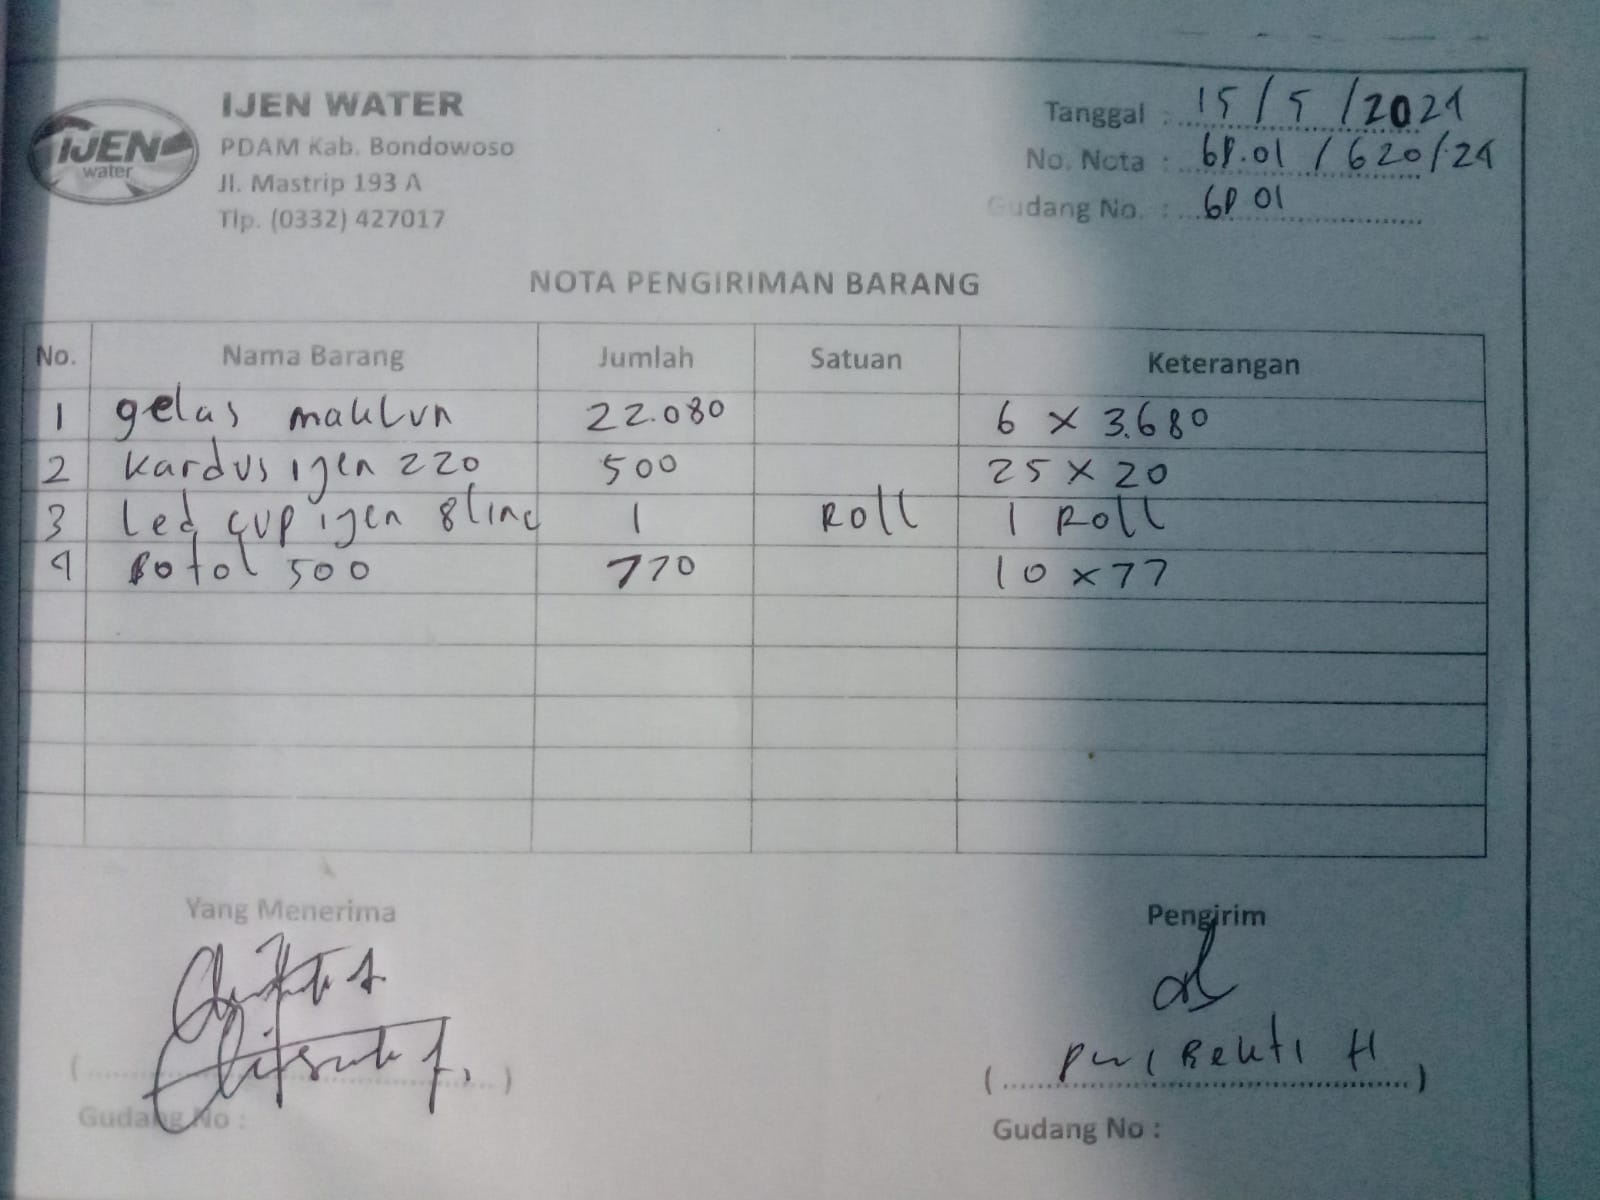 IJEN WATER
IJEN
water
PDAM Kab. Bondowoso
Jl. Mastrip 193 A
Tlp. (0332) 427017
Tanggal : 15/5/2024
No. Nota : GP.01/620/24
Gudang No. : GP 01
NOTA PENGIRIMAN BARANG
No. Nama Barang Jumlah Satuan Keterangan
1 gelas maklun 22.080 6 x 3.680
2 kardus ijen 220 500 25 x 20
3 Led cup ijen 8 line 1 Roll 1 Roll
4 Botol 500 770 10 x 77
Yang Menerima Pengirim
( ) ( Bekti H )
Gudang No : Gudang No :